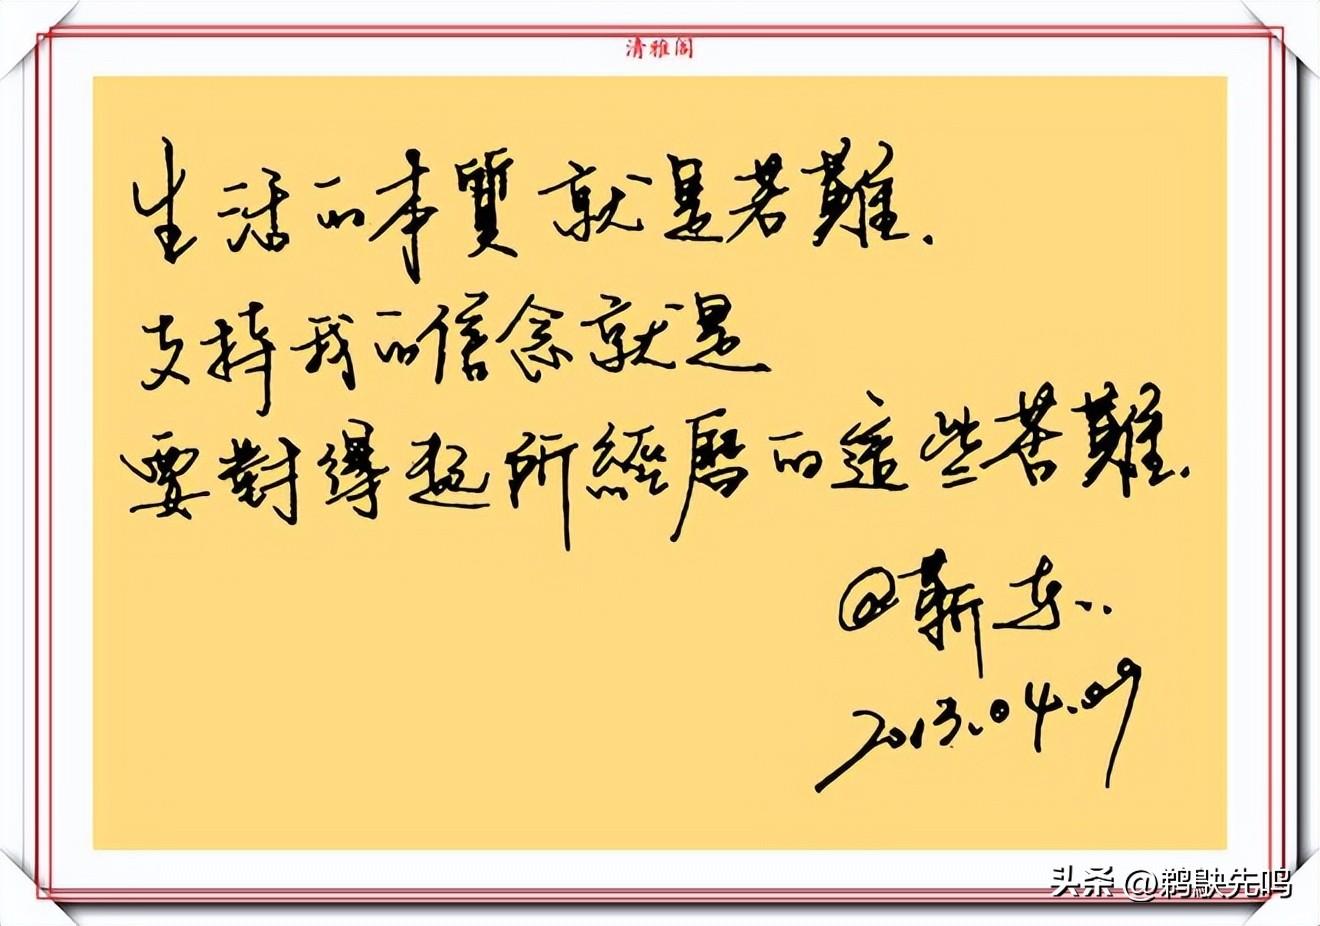 清雅阁
生活的本質就是苦難.
支持我的信念就是
要對得起所經歷的這些苦難.
@靳东..
2013.04.09
头条 @鹈鴃先鸣